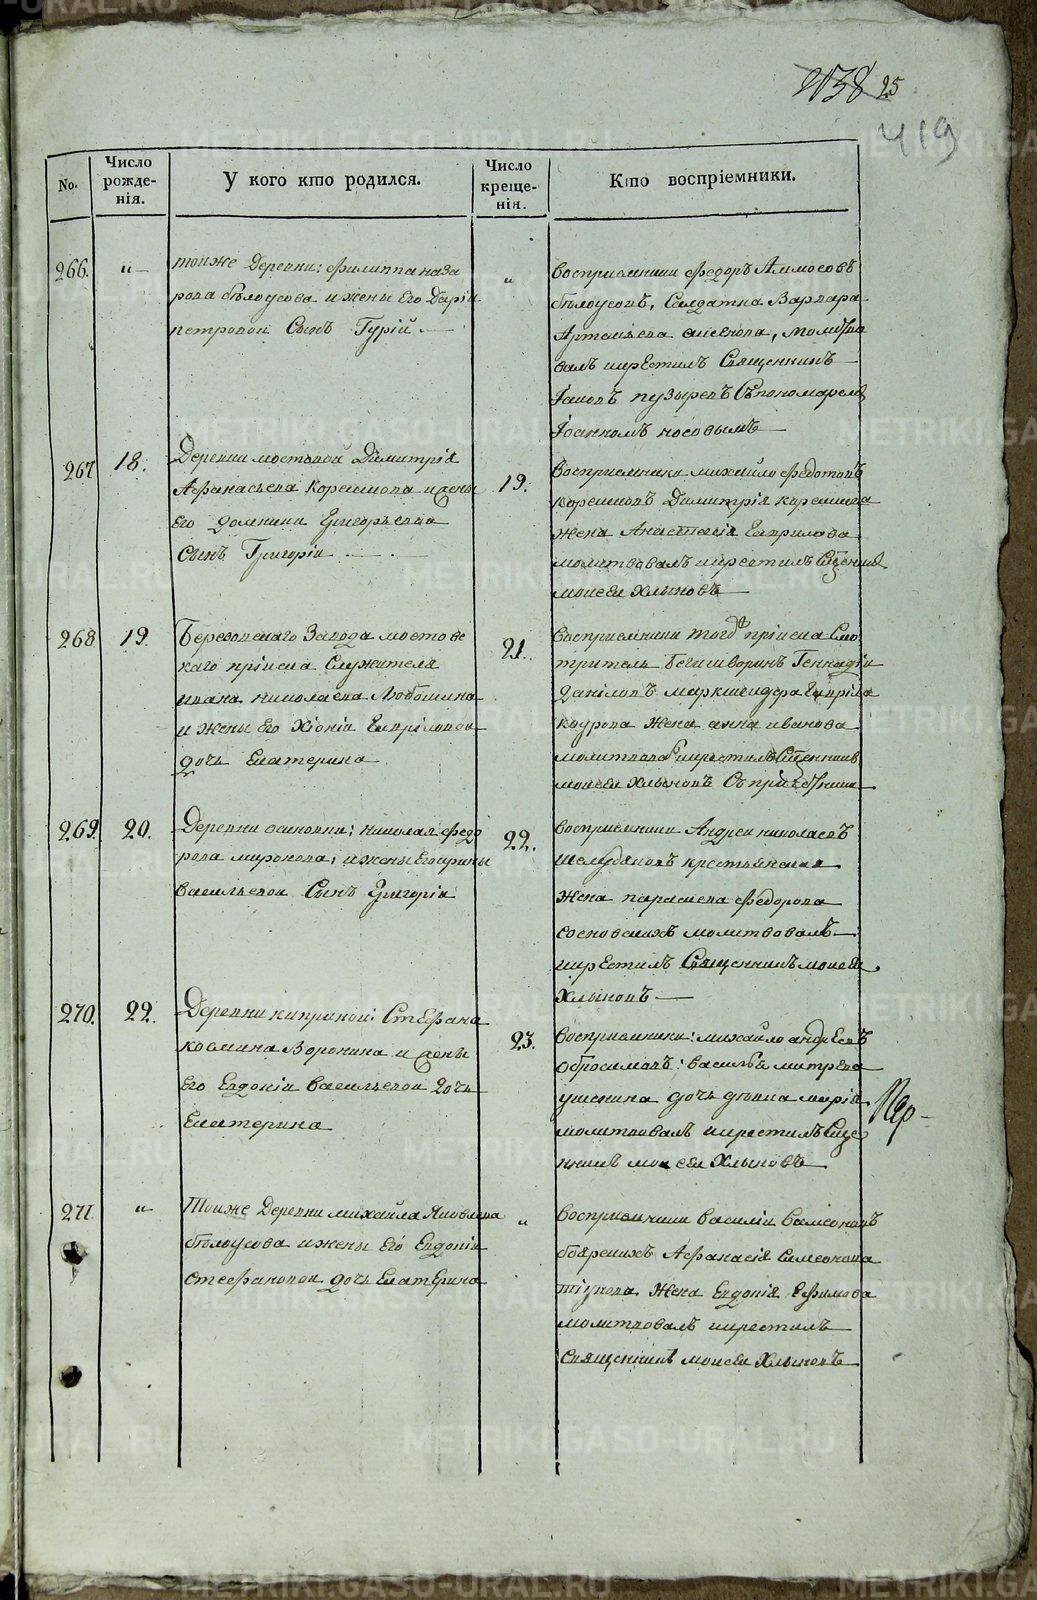 2138 25
419
No.
Число рожде-нія.
У кого кто родился.
Число креще-нія.
Кто воспріемники.
266.
"
тойже Деревни: Филиппа наза
рова бѣлоусова и жены Его Дарiи
петровой Сынъ Гурiй
"
восприемники Федоръ Аммосовъ
бѣлоусовъ, Салдатка Варвара
Артемьева, молитво
валъ икрестилъ Священникъ
Iаковъ пузыревъ Съпономаремъ
Iоанномъ носовымъ
267
18.
Деревни мостовой Димитрiя
Афанасьева Корешкова ижены
Его домники Григорьевой
Сынъ Григорiи
19.
восприемники михайло Федотовъ
корешковъ Димитрiя корешкова
жена Анастасiя Гаврилова
молитвовалъ икрестилъ Сщенникъ
моисей Хлыновъ
268
19.
Березовскаго Завода мостовс
каго прiиска Служителя
ивана николаева Любошина
и жены Его Хiонiи Гаврiловой
дочь Екатерина
21.
восприемники того прiиска Смо
тритель Геннадiи
данiловъ маркшейдера Гаврiла
коурова жена анна иванова
икрестилъ Сщенникъ
моисей Хлыновъ
269.
20.
Деревни осиновки: николая федо
рова миронова: и жены Его ирины
васильевой Сынъ Григорiи
22.
восприемники Андреи николаевъ
крестьянская
жена параскева Федорова
молитвовалъ
икрестилъ Священникъ моисей
Хлыновъ
270.
22.
Деревни киприной: Стефана
космина Воронина и жены
Его Евдокiи васильевой дочь
Екатерина
23.
восприемники: михайло андреевъ
обросимовъ: василья митрева
ушенина дочь дѣвка марiя
молитвовалъ икрестилъ Свще
нникъ моисей Хлыновъ
271
"
Тойже Деревни михайла Яковлева
бѣлоусова ижены Его Евдокiи
стефановой дочь Екатерина
"
восприемники василiи Самсоновъ
боярскихъ Афанасiя симеонова
тiунова жена Евдокiя Ефимова
молитвовалъ икрестилъ
священникъ моисей Хлыновъ